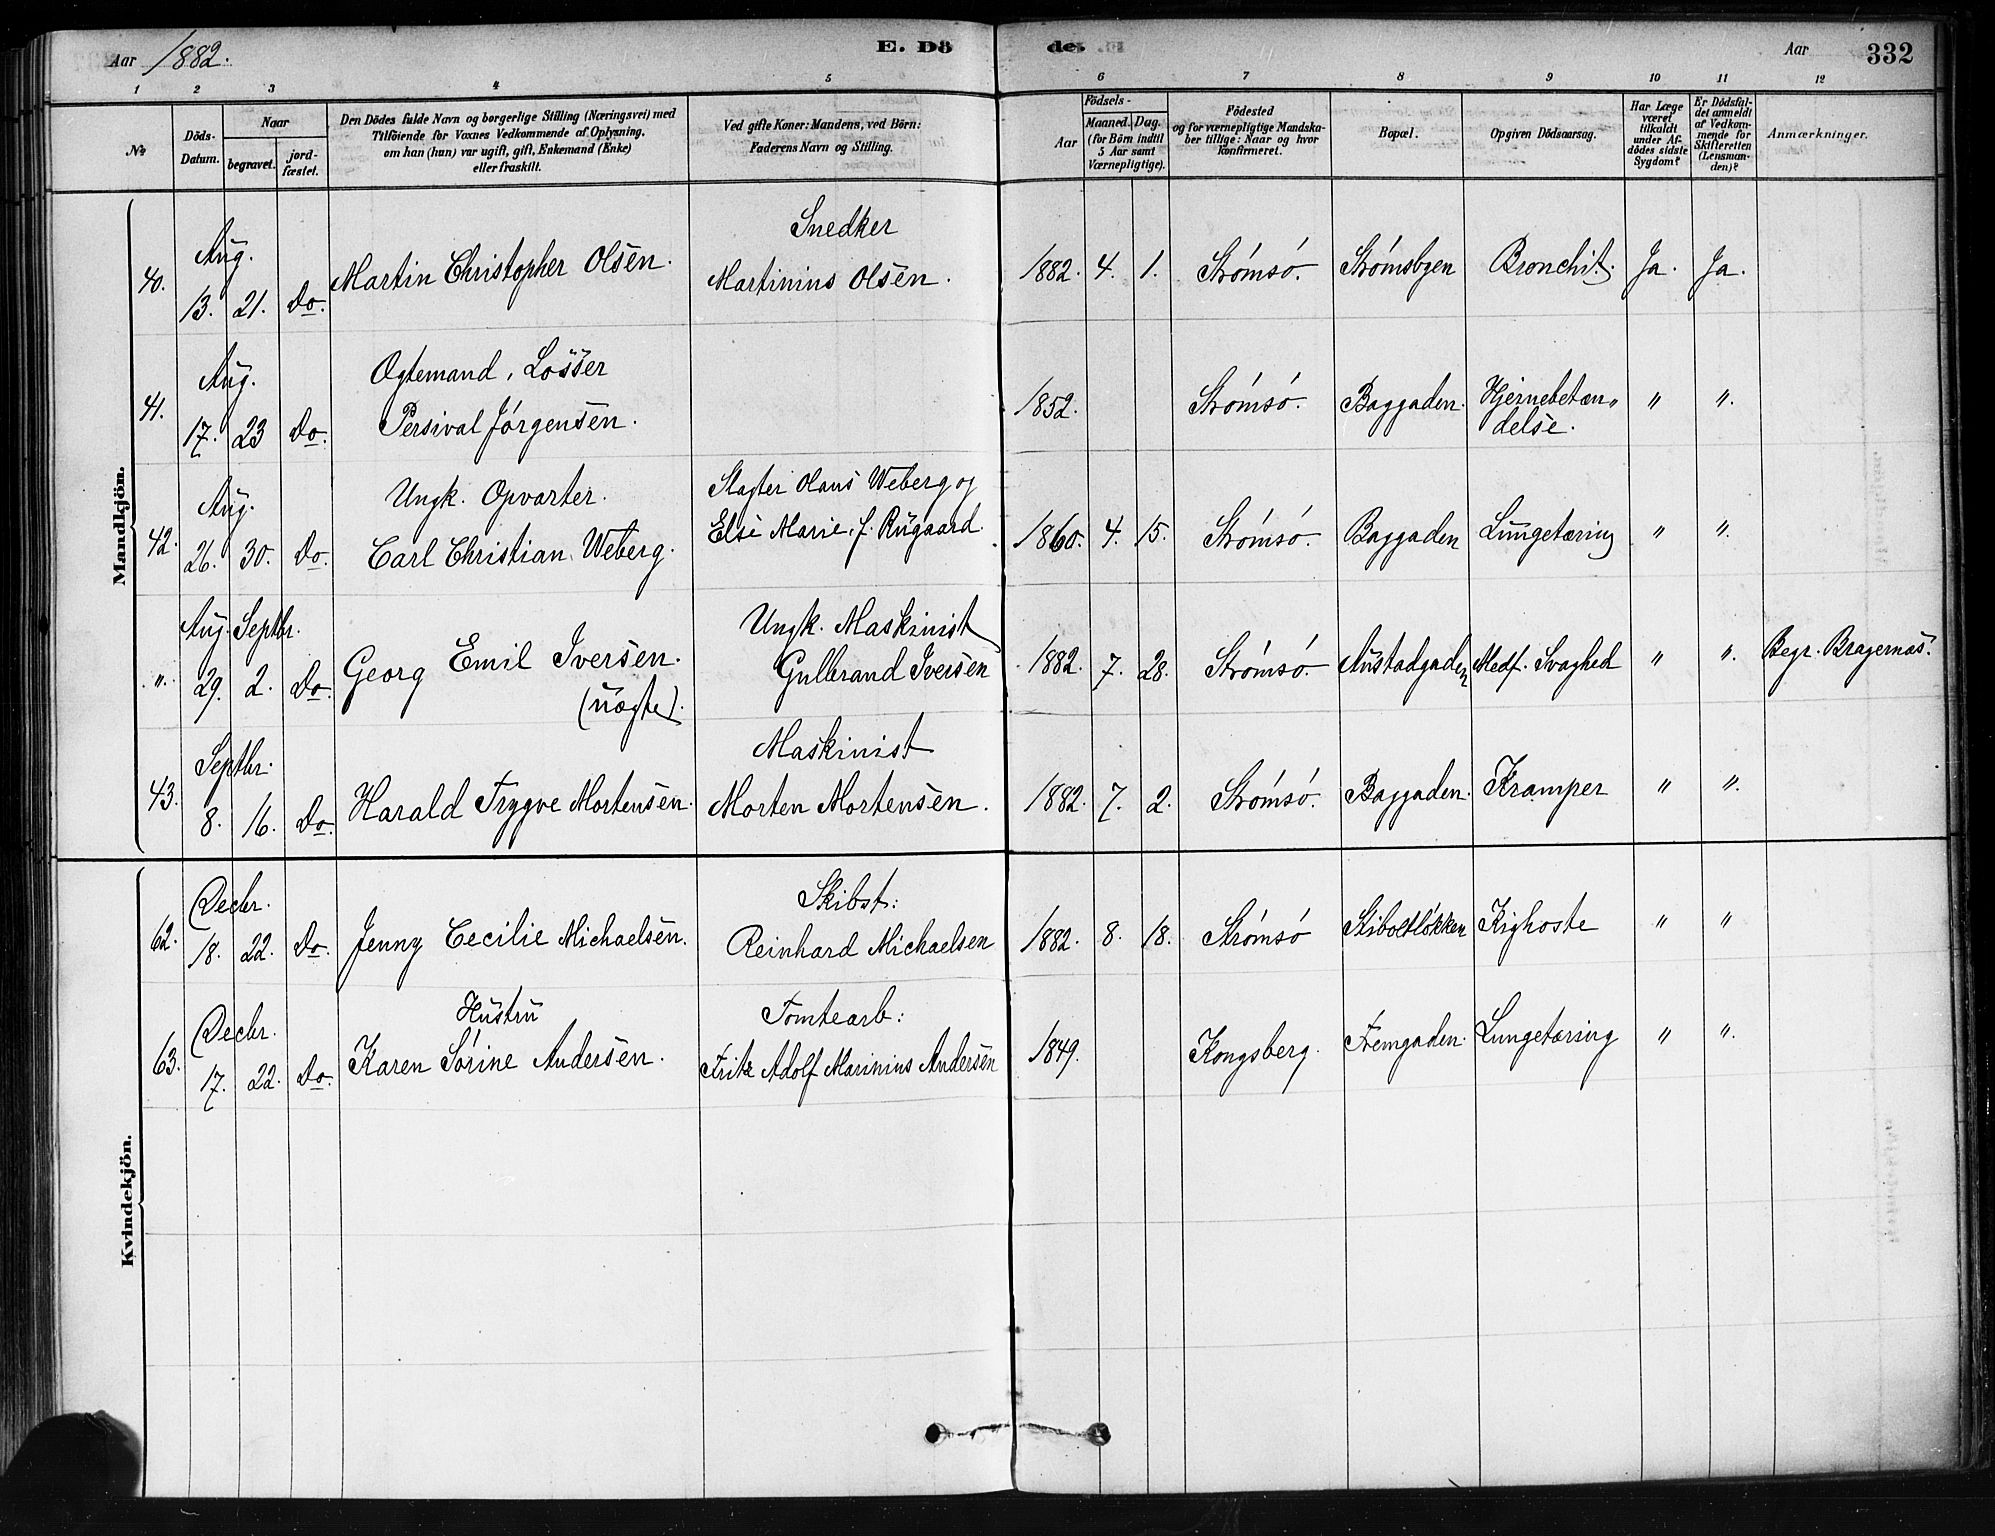 Aar 1882.
E. Dö
de.
Aar
332
1 2 3 4 5 6 7 8 9 10 11 12
No
Döds-Datum.
Naar
begravet.
jordfæstet.
Den Dödes fulde Navn og borgerlige Stilling (Næringsvei) med
Tilföiende for Voxnes Vedkommende af Oplysning,
om han (hun) var ugift, gift, Enkemand (Enke)
eller fraskilt.
Ved gifte Koner: Mandens, ved Börn:
Faderens Navn og Stilling.
Födsels-
Aar
Maaned. Dag.
(for Börn indtil
5 Aar samt
Værnepligtige).
Födested
og for værnepligtige Mandskaber tillige: Naar og hvor
konfirmeret.
Bopæl.
Opgiven Dödsaarsag.
Har Læge
været
tilkaldt
under Afdödes sidste
Sygdom?
Er Dödsfaldet anmeldt
af Vedkommende for
Skifteretten
(Lensmanden)?
Anmærkninger.
Mandkjön.
Aug. Snedker
40. 13. 21. Do. Martin Christopher Olsen. Martinius Olsen. 1882. 4. 1. Strømsø. Strømsbyen Bronchit. Ja. Ja.
Aug. Ogtemand, Losser
41. 17. 23 Do. Persival Jørgensen. 1852. Strømsø. Baggaden. Hjernebetæn„ " ".
delse.
Aug. Ungk. Opvarter. Slagter Olaus Weberg og
42. 26. 30. Do. Carl Christian Weberg. Else Marie, f. Rugaard. 1860. 4. 15. Strømsø. Baggaden Lungetæring " ".
Aug. Septbr. Ungk. Maskinist
". 29. 2. Do. Georg Emil Iversen. Gulbrand Iversen 1882. 7. 28. Strømsø. Austadgaden Medf. Svaghed " ". Begr. Bragernæs.
(uægte).
Septbr. Maskinist
43. 8. 16. Do. Harald Trygve Mortensen. Morten Mortensen. 1882. 7. 2. Strømsø. Baggaden. Kramper " ".
Kvindekjön.
Decbr. Skibst:
62. 18. 22. Do. Jenny Cecilie Michaelsen. Reinhard Michaelsen 1882. 8. 18. Strømsø Skiboltløkken Kighoste " "
Decbr. Hustru Tomtearb:
63. 17. 22. Do. Karen Sørine Andersen. Fritz Adolf Marinius Andersen 1849. Kongsberg. Fremgaden. Lungetæring " ".